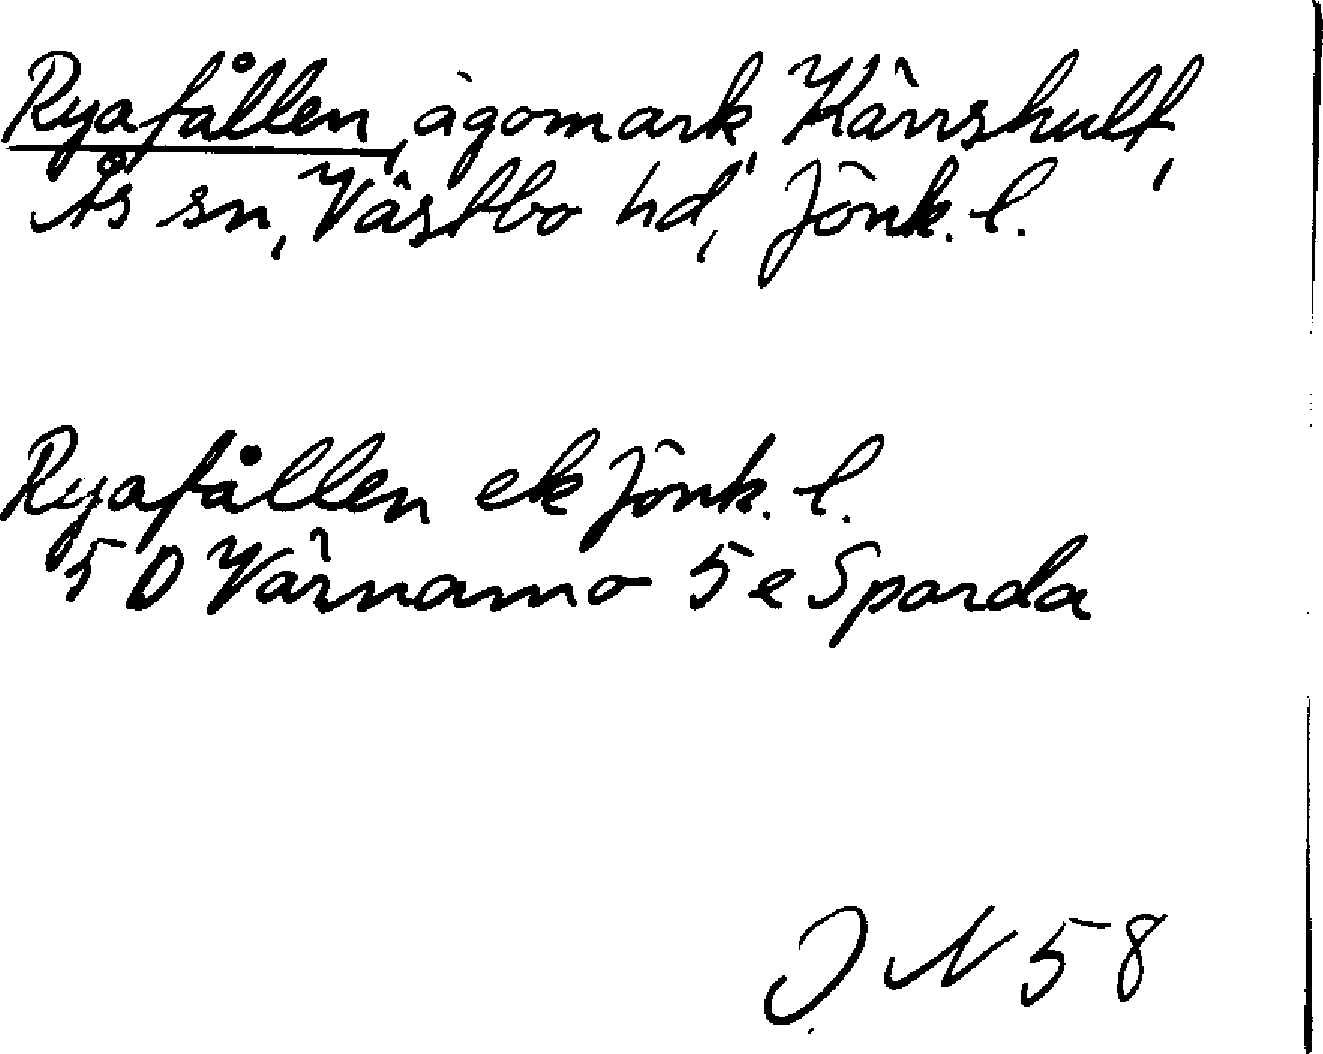 Ryafållen, ägomark, Kärrshult,
Ås sn, Västbo hd, Jönk. l.
Ryafållen ek Jönk. l.
5 D Värnamo 5 e Sporda
J. N 58